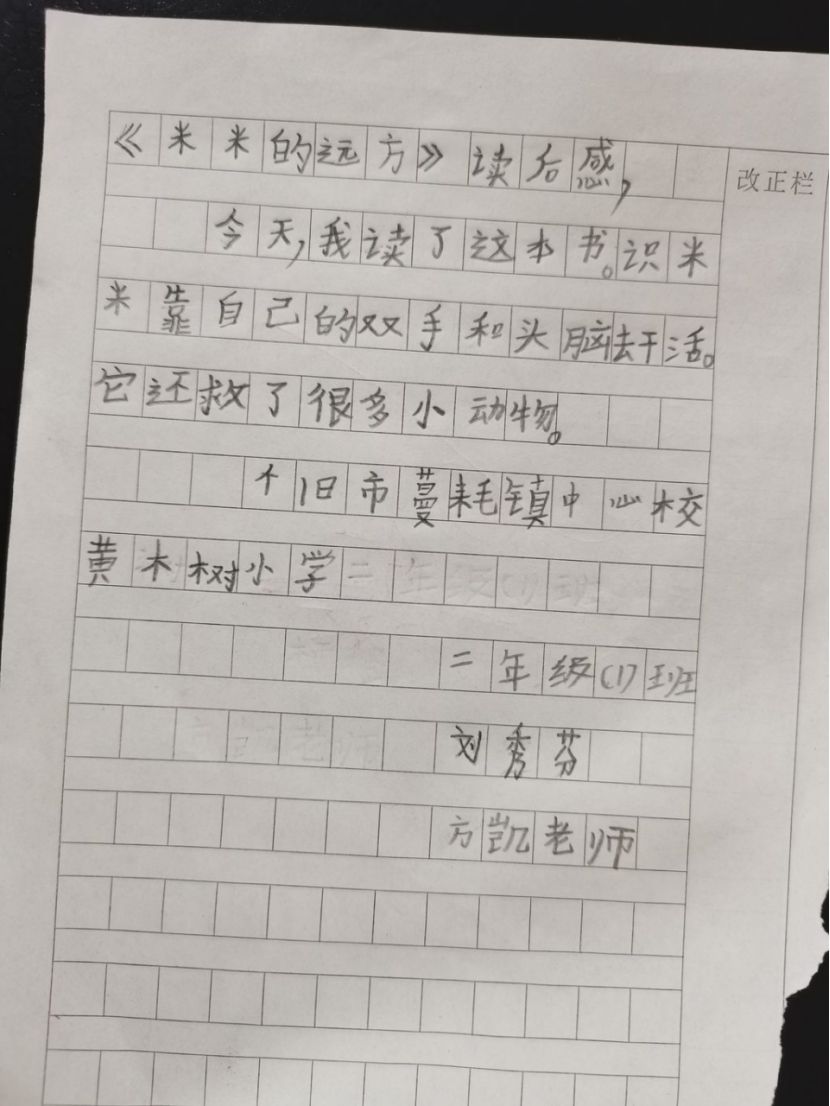 《米米的远方》读后感,
改正栏
今天,我读了这本书。识米
米靠自己的双手和头脑去干活。
它还救了很多小动物。
个旧市蔓耗镇中心校
黄木树小学二年级(1)班
二年级(1)班
刘秀芬
方凯老师